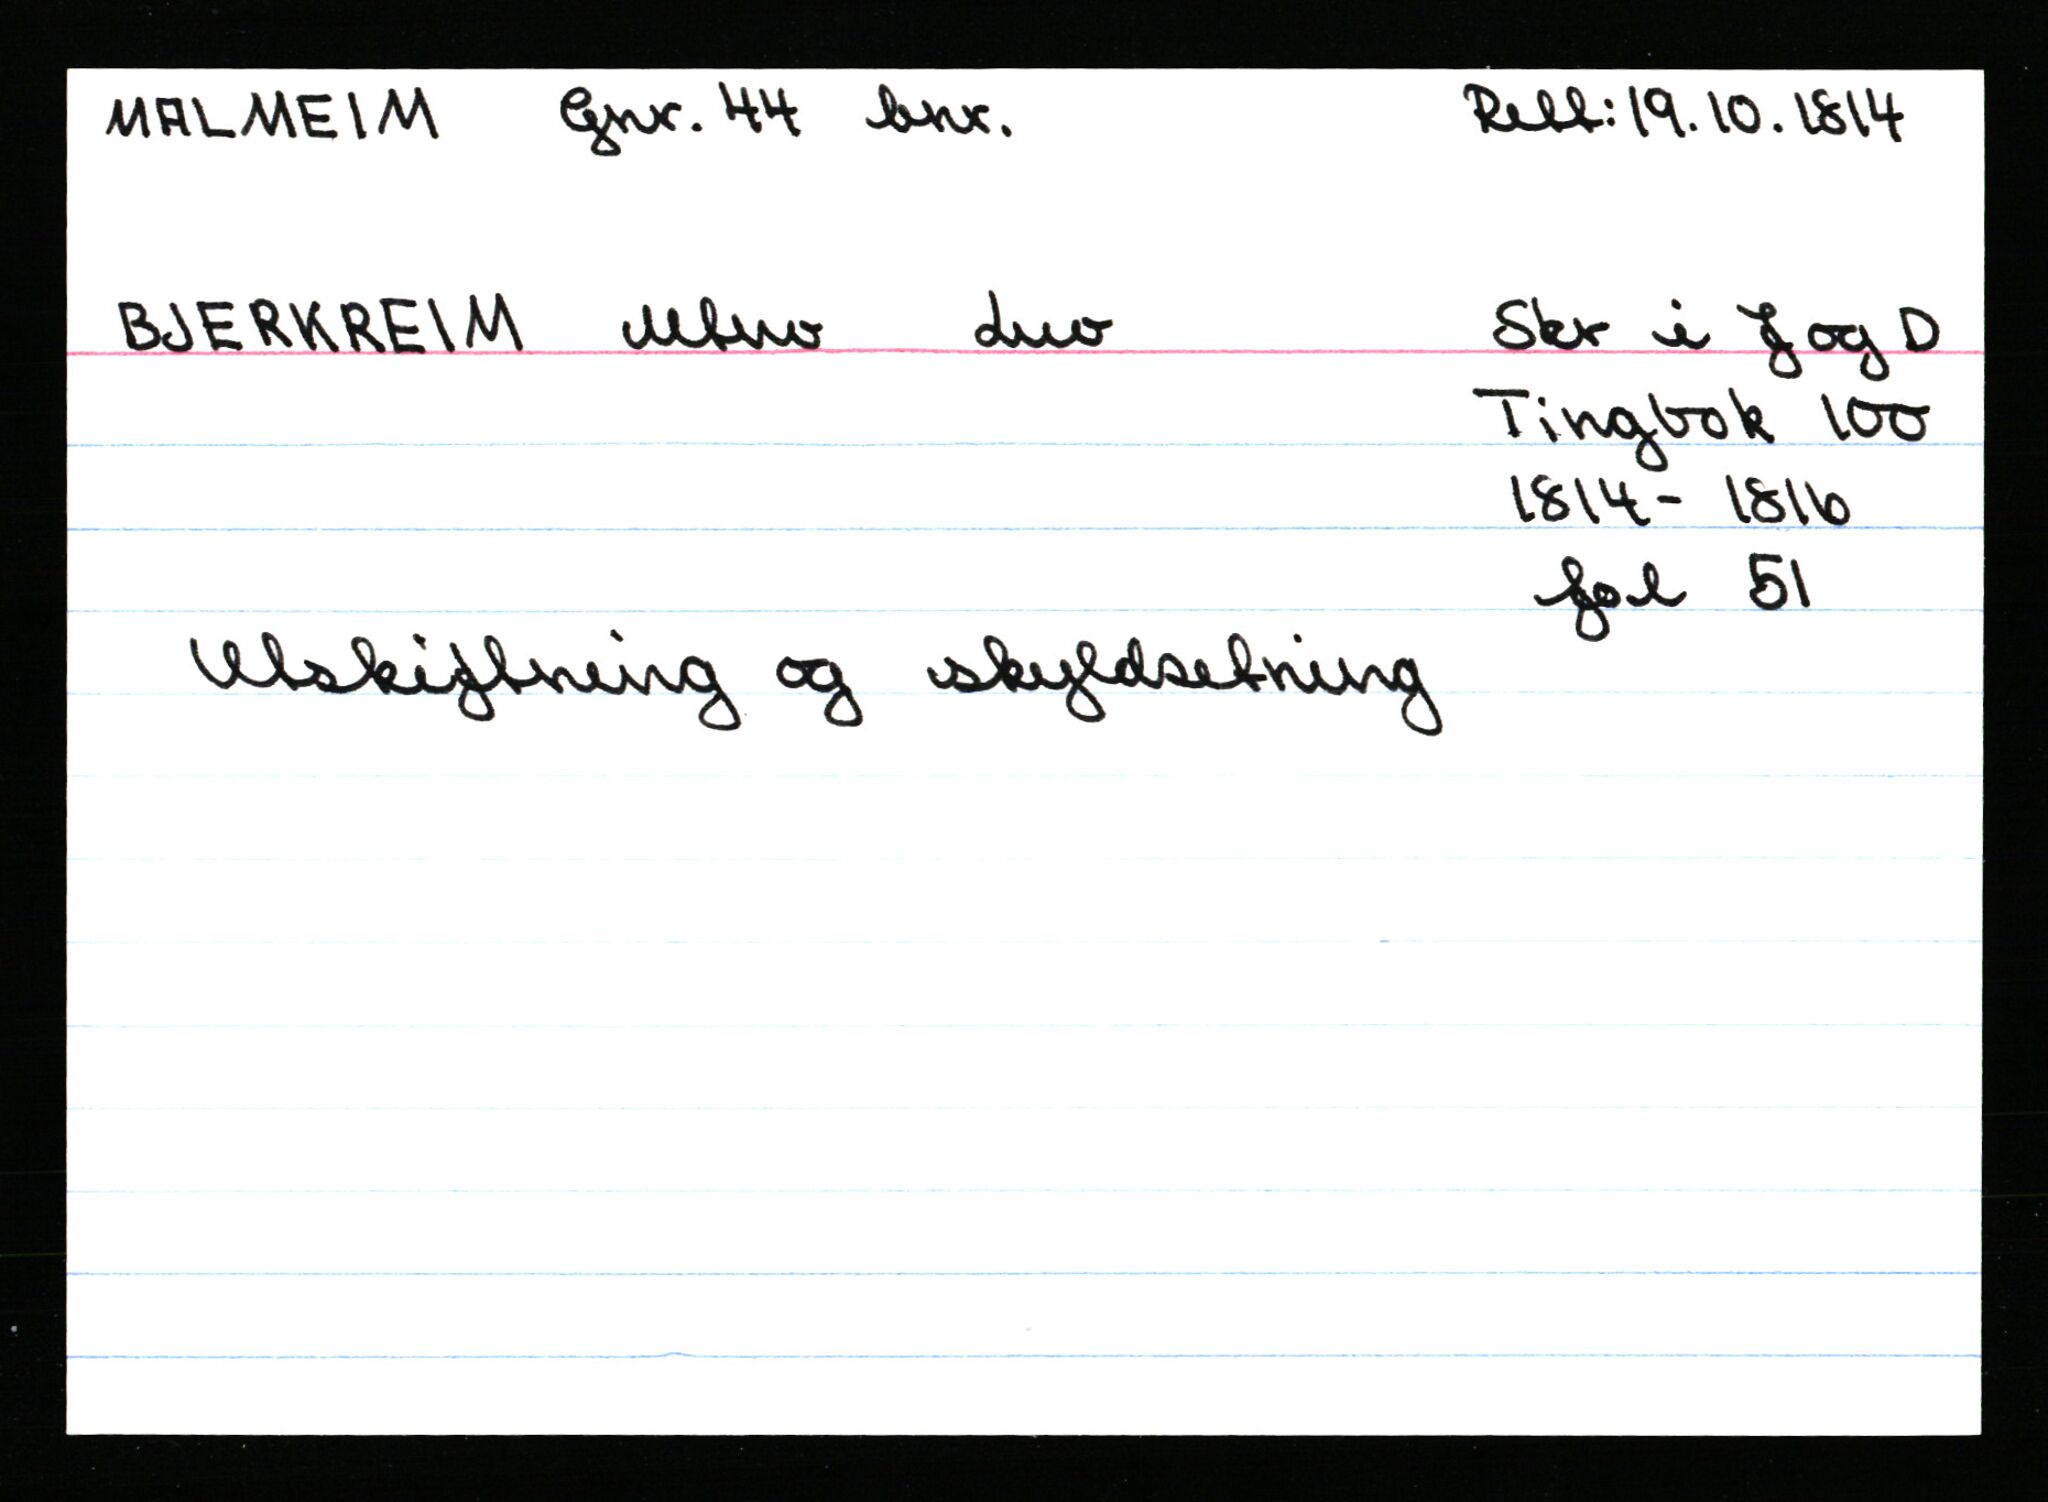 MALMEIM Gnr. 44 bnr. Rett: 19.10.1814
BJERKREIM Mtno Lno Skr i J og D
Tingbok 100
1814 - 1816
fol 51
Utskiftning og skyldsetning